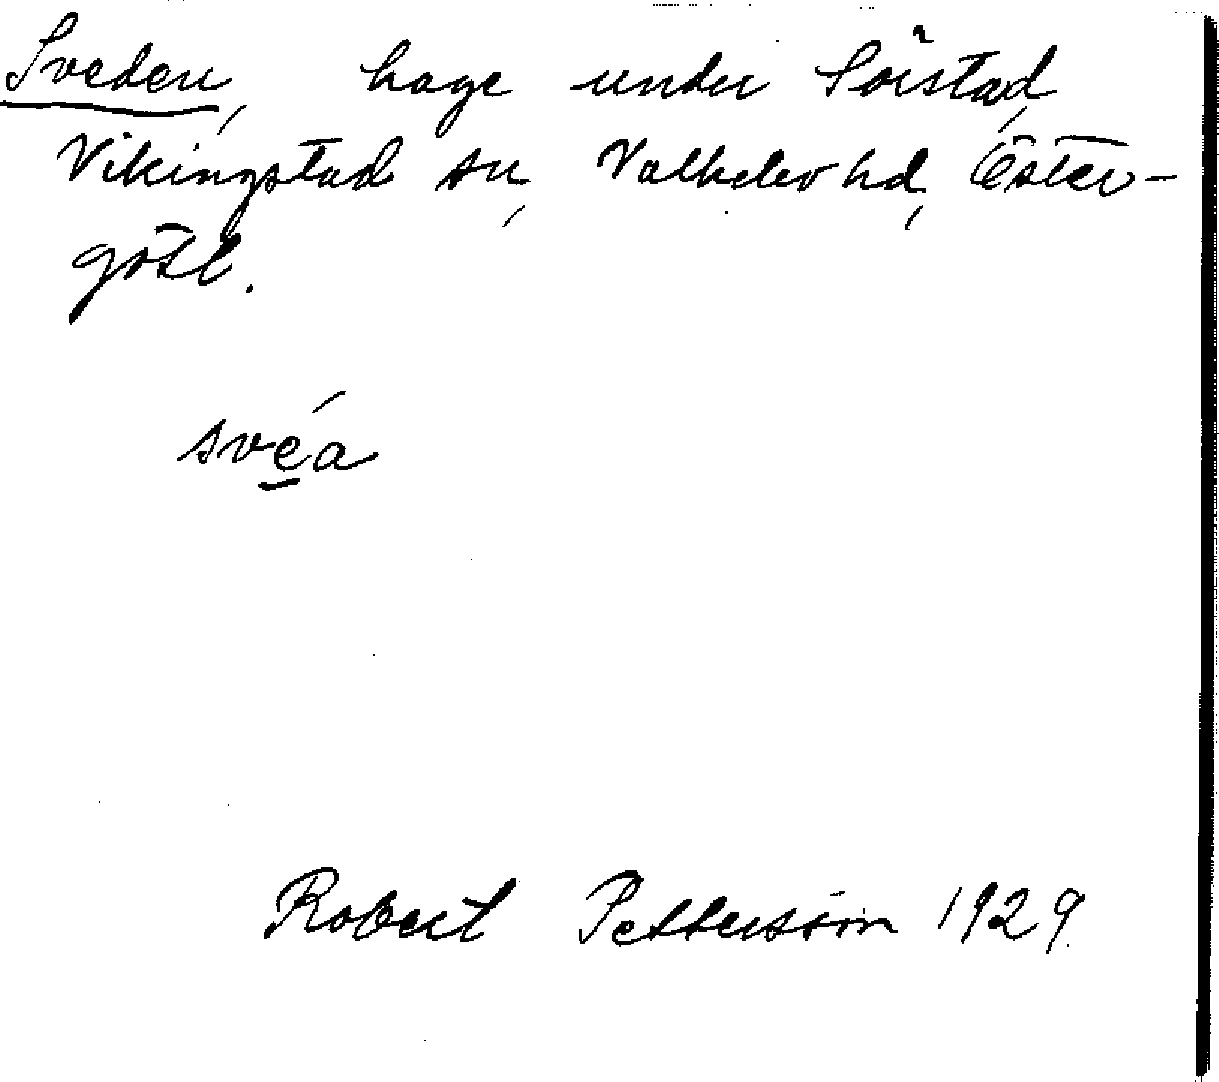 Sveden, hage under Sörstad,
Vikingstad sn, Valkebo hd, Öster-
götl.
svéa
Robert Pettersson 1929.